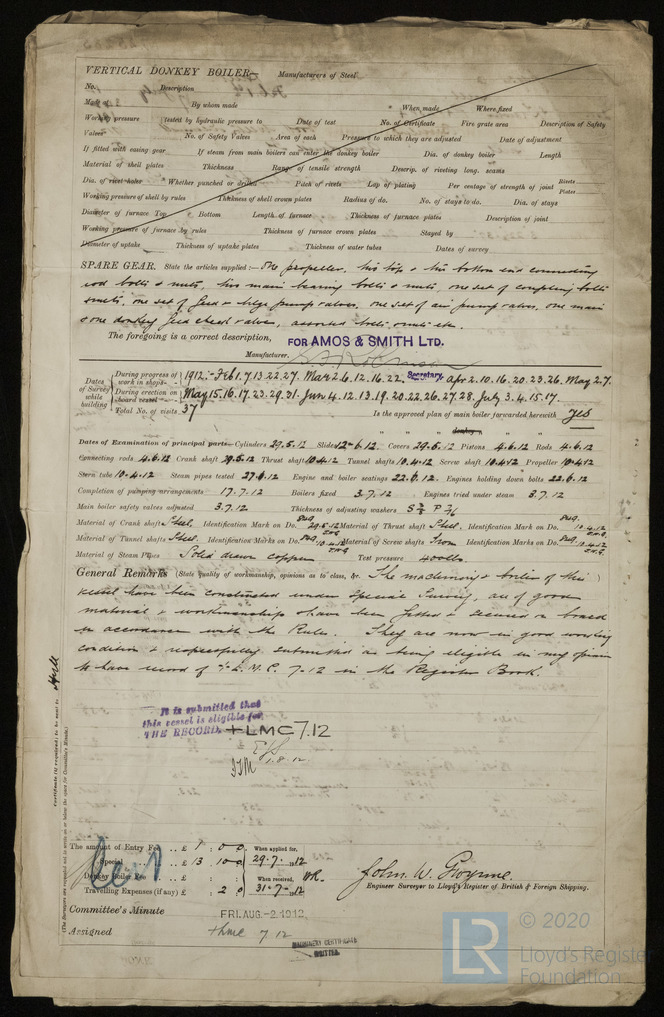 VERTICAL DONKEY BOILER— Manufacturers of Steel
No. Description
Made at By whom made When made Where fixed
Working pressure tested by hydraulic pressure to Date of test No. of Certificate Fire grate area Description of Safety
Valves No. of Safety Valves Area of each Pressure to which they are adjusted Date of adjustment
If fitted with easing gear If steam from main boilers can enter the donkey boiler Dia. of donkey boiler Length
Material of shell plates Thickness Range of tensile strength Descrip. of riveting long. seams
Dia. of rivet holes Whether punched or drilled Pitch of rivets Lap of plating Per centage of strength of joint Rivets Plates
Working pressure of shell by rules Thickness of shell crown plates Radius of do. No. of stays to do. Dia. of stays
Diameter of furnace Top Bottom Length of furnace Thickness of furnace plates Description of joint
Working pressure of furnace by rules Thickness of furnace crown plates Stayed by
Diameter of uptake Thickness of uptake plates Thickness of water tubes Dates of survey
SPARE GEAR. State the articles supplied:— One propeller, two top & two bottom end connecting
rod bolts & nuts, two main bearing bolts & nuts, one set of coupling bolts
& nuts, one set of feed & bilge pump valves, one set of air pump valves, one main
& one donkey feed check valves, assorted bolts, nuts etc.
The foregoing is a correct description, FOR AMOS & SMITH LTD.
Manufacturer.
Secretary.
Dates of Survey while building
During progress of work in shops - - 1912:- Feb 1. 7. 13. 22. 27. Mar 2. 6. 12. 16. 22. Apr 2. 10. 16. 20. 23. 26. May 2. 7.
During erection on board vessel - - - May 15. 16. 17. 23. 29. 31. Jun 4. 12. 13. 19. 20. 22. 26. 27. 28. July 3. 4. 15. 17.
Total No. of visits 37 Is the approved plan of main boiler forwarded herewith Yes
" " " donkey " " "
Dates of Examination of principal parts—Cylinders 29.5.12 Slides 12.6.12 Covers 29.5.12 Pistons 4.6.12 Rods 4.6.12
Connecting rods 4.6.12 Crank shaft 29.5.12 Thrust shaft 10.4.12 Tunnel shafts 10.4.12 Screw shaft 10.4.12 Propeller 10.4.12
Stern tube 10.4.12 Steam pipes tested 27.6.12 Engine and boiler seatings 22.6.12 Engines holding down bolts 22.6.12
Completion of pumping arrangements 17.7.12 Boilers fixed 3.7.12 Engines tried under steam 3.7.12
Main boiler safety valves adjusted 3.7.12 Thickness of adjusting washers
Material of Crank shaft Steel Identification Mark on Do. 29.5.12 Material of Thrust shaft Steel Identification Mark on Do. 10.4.12
Material of Tunnel shafts Steel Identification Marks on Do. 10.4.12 Material of Screw shafts Iron Identification Marks on Do. 10.4.12
Material of Steam Pipes Solid drawn copper Test pressure 400 lbs.
General Remarks (State quality of workmanship, opinions as to class, &c. The machinery & boiler of this
vessel have been constructed under Special Survey, are of good
material & workmanship & have been fitted & secured on board
in accordance with the Rules. They are now in good working
condition & respectfully submitted as being eligible in my opinion
to have record of + L.M.C. 7-12 in the Register Book.
It is submitted that
this vessel is eligible for
THE RECORD. + LMC 7.12
1.8.12
Certificate (if required) to be sent to Hull
(The Surveyors are requested not to write on or below the space for Committee's Minute.)
The amount of Entry Fee .. £ 1 : 0 : 0 When applied for,
Special .. £ 13 : 10 : 0 29.7.1912
Donkey Boiler Fee .. £ : : When received,
Travelling Expenses (if any) £ : 2 : 0 31.7.1912
John W. Gwynne.
Engineer Surveyor to Lloyd's Register of British & Foreign Shipping.
Committee's Minute FRI. AUG. -2. 1912
Assigned + LMC 7 12
MACHINERY CERTIFICATE
WRITTEN.
LR © 2020
Lloyd's Register
Foundation